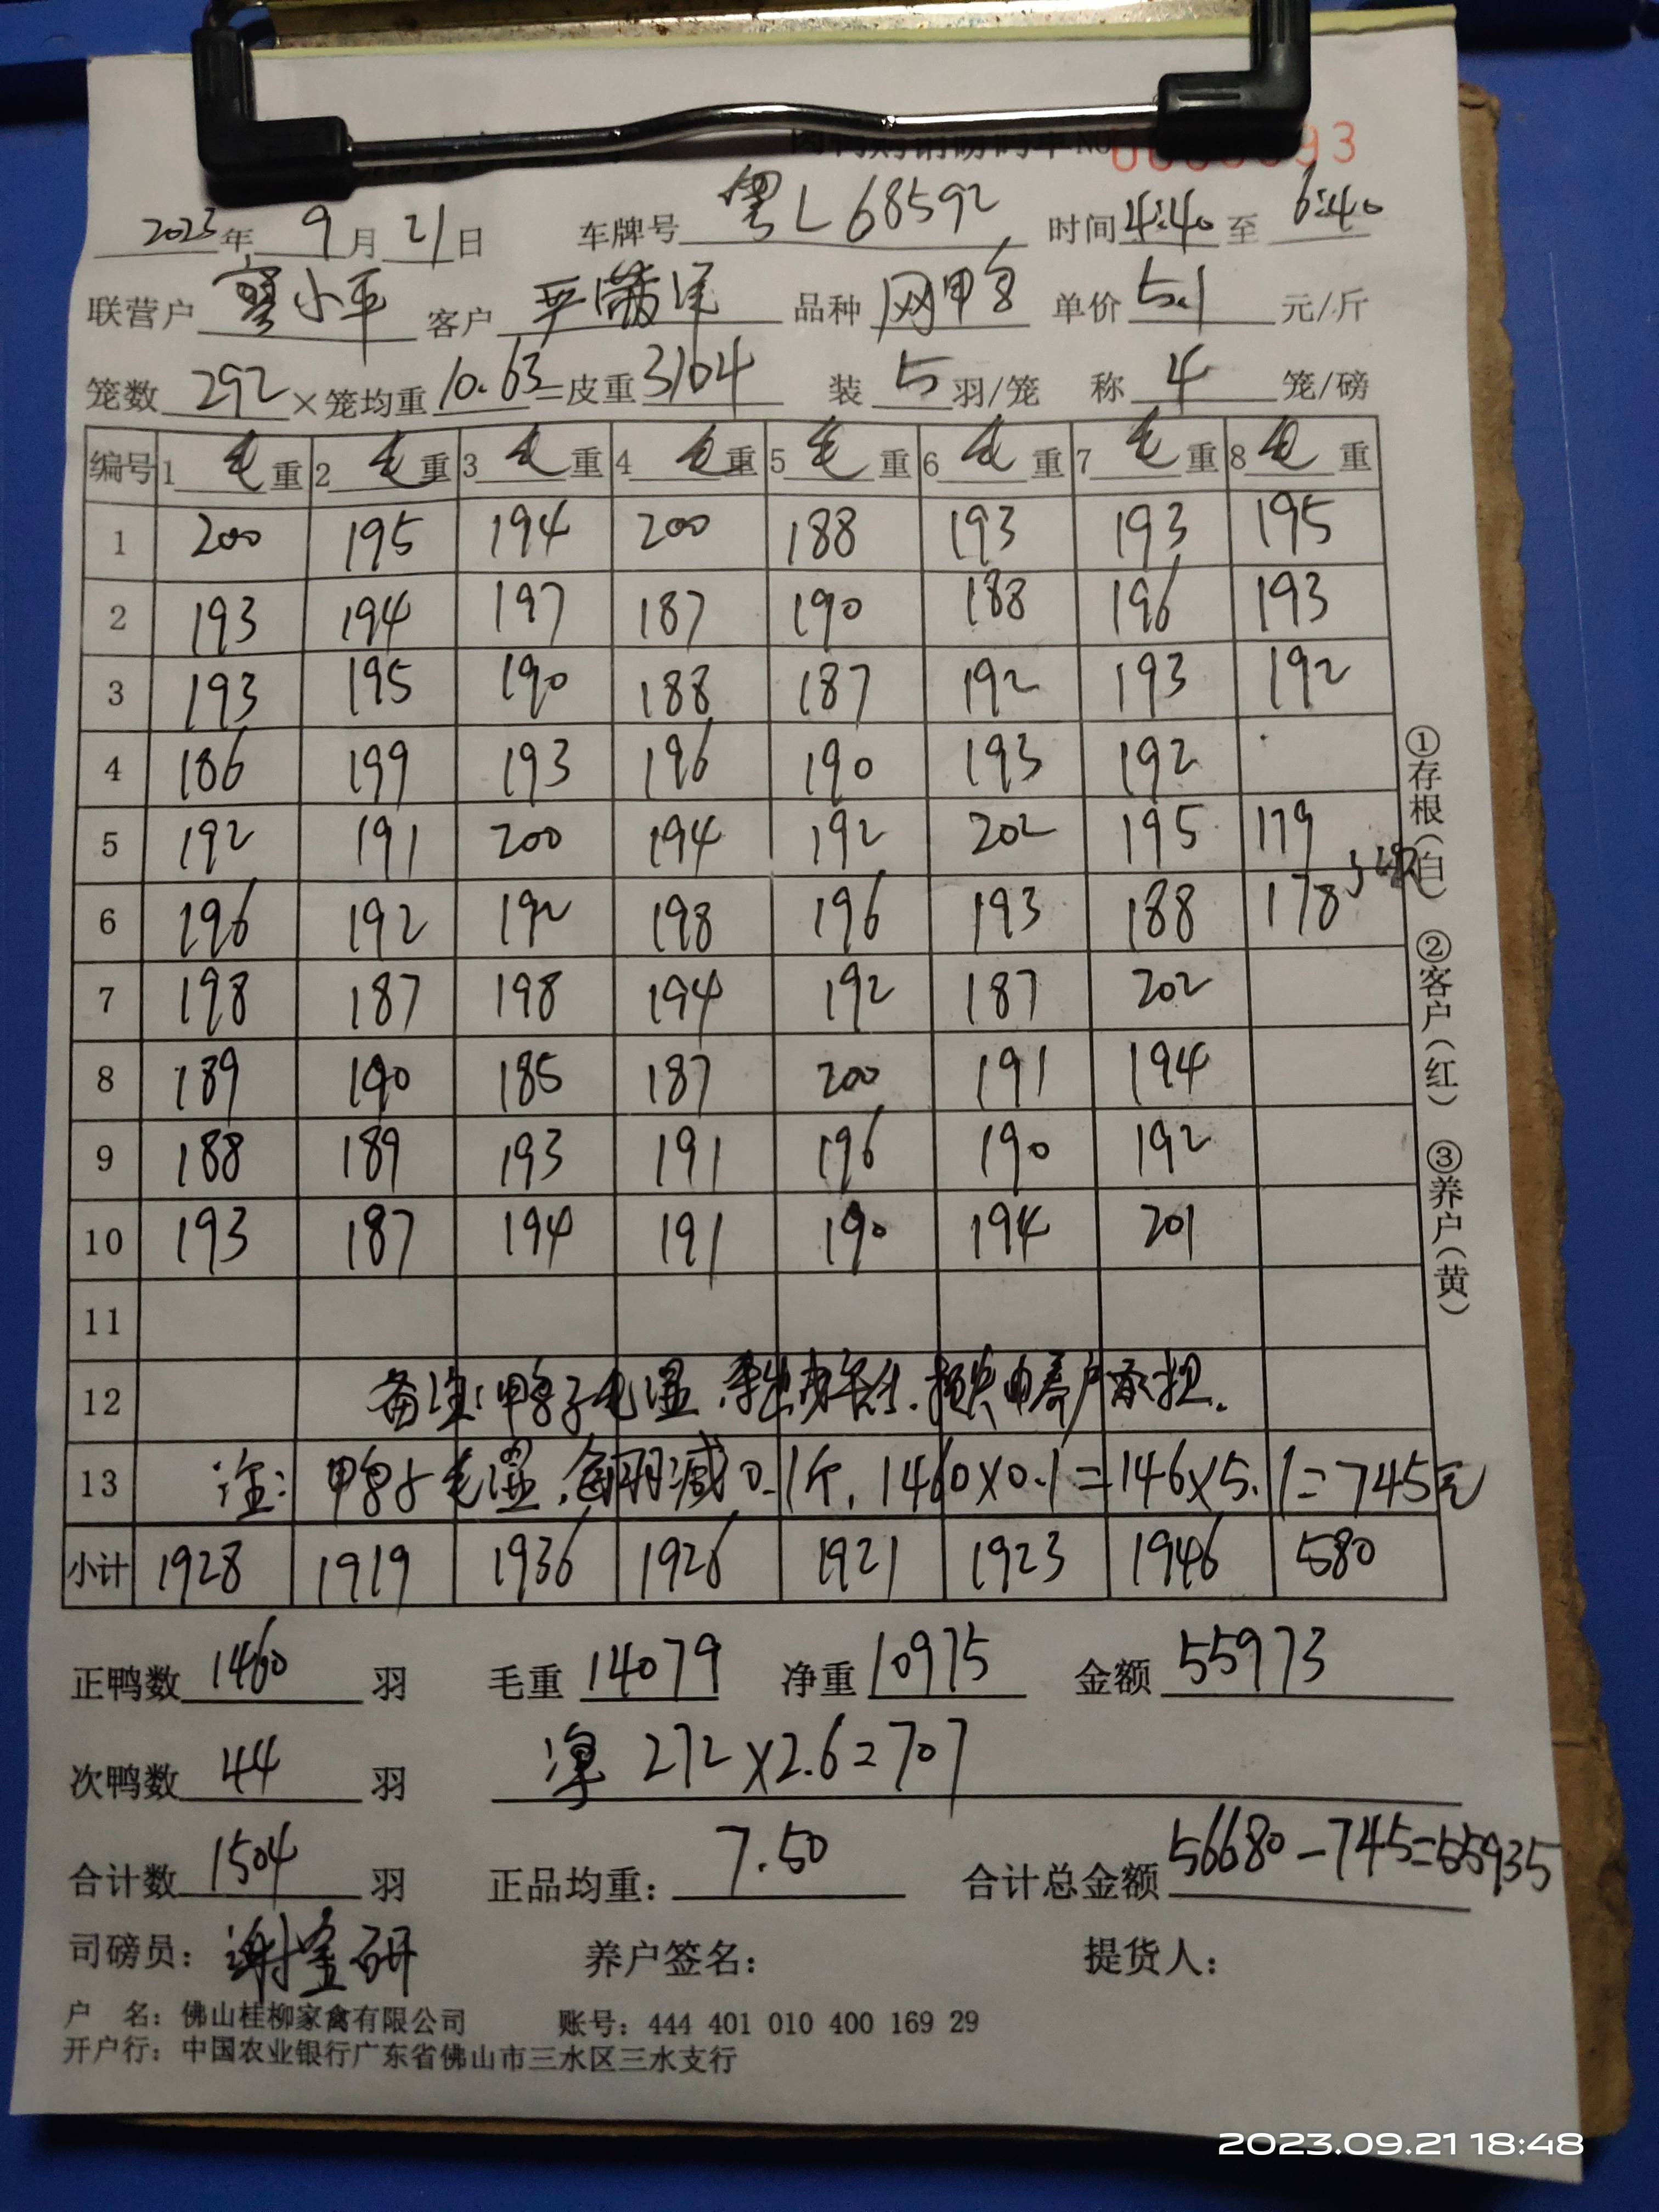 93
2023年 9月 21日 车牌号 粤L68592 时间 4:40 至 6:40
联营户 小平 客户 严 品种 网鸭 单价 5.1 元/斤
笼数 292 ×笼均重 10.63 =皮重 3104 装 5 羽/笼 称 4 笼/磅
编号 1 毛重 2 毛重 3 毛重 4 毛重 5 毛重 6 毛重 7 毛重 8 毛重
1 200 195 194 200 188 193 193 195
2 193 194 197 187 190 188 196 193
3 193 195 190 188 187 192 193 192
4 186 199 193 196 190 193 192
5 192 191 200 194 192 202 195 179
6 196 192 192 198 196 193 188 178
7 198 187 198 194 192 187 202
8 189 190 185 187 200 191 194
9 188 189 193 191 196 190 192
10 193 187 194 191 190 194 201
11
12 备注:鸭子毛湿, 损失由养户承担.
13 注: 鸭子毛湿,每羽减0.1斤, 1460×0.1=146×5.1=745元
小计 1928 1919 1936 1926 1921 1923 1946 580
正鸭数 1460 羽 毛重 14079 净重 10975 金额 55973
次鸭数 44 羽 272×2.6=707
合计数 1504 羽 正品均重: 7.50 合计总金额 56680-745=55935
司磅员: 谢宝研 养户签名: 提货人:
户 名: 佛山桂柳家禽有限公司 账号: 444 401 010 400 169 29
开户行: 中国农业银行广东省佛山市三水区三水支行
①存根(白) ②客户(红) ③养户(黄)
2023.09.21 18:48